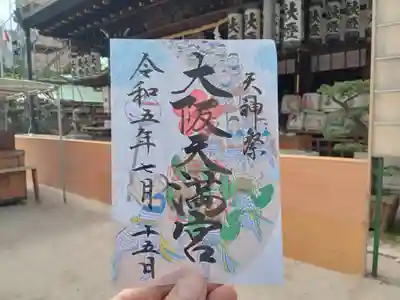 天神祭
大阪天満宮
令和五年七月二十五日